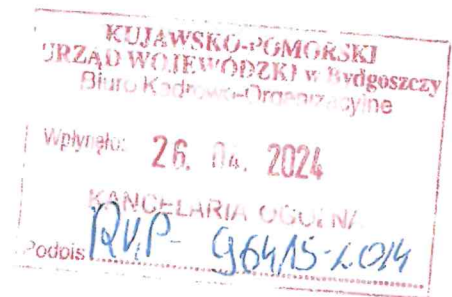 KUJAWSKO-POMORSKI
URZĄD WOJEWÓDZKI w Bydgoszczy
Biuro Kadrowo-Organizacyjne
Wpłynęło: 26. 04. 2024
KANCELARIA OGÓLNA
Podpis